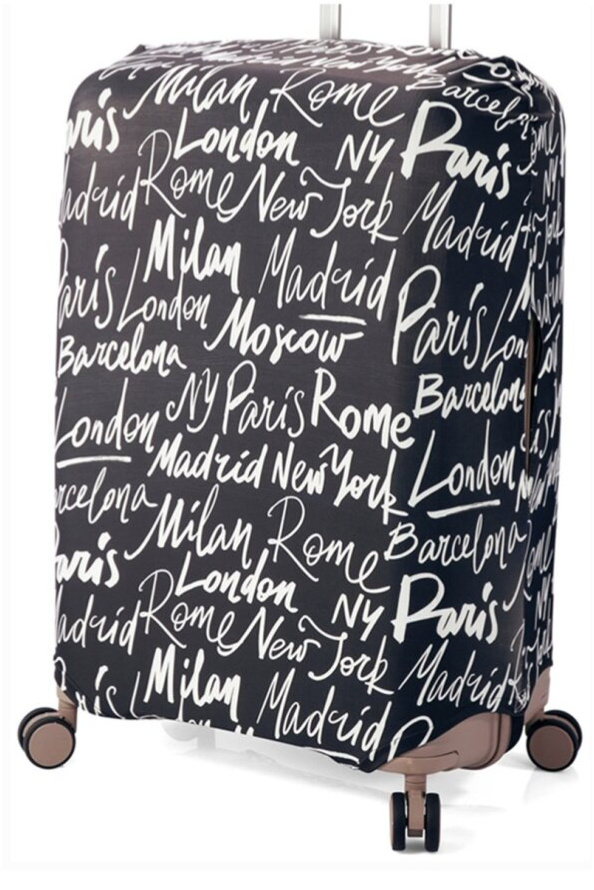 New York
Milan Rome Barcelona
Paris London NY Paris
Madrid Rome New York Madrid
Milan Madrid
Paris London Moscow Paris London
Barcelona Barcelona
NY Paris Rome
London Madrid New York London
Barcelona Milan Rome Barcelona
Paris London NY Paris
Madrid Rome New York Madrid
Milan Madrid